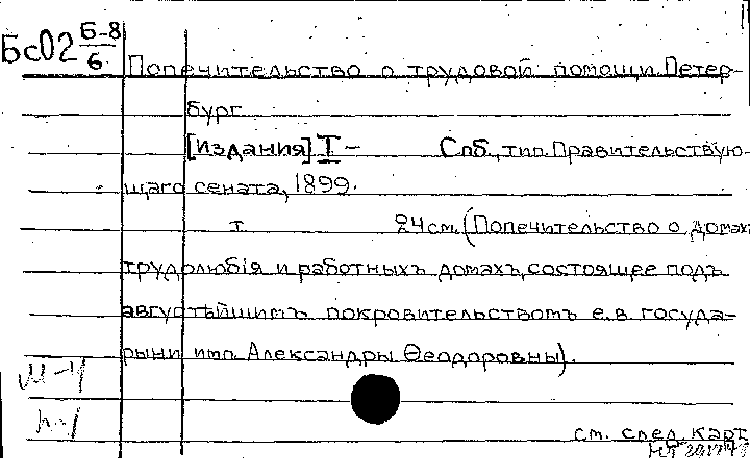 БсО2 Б-8/6
Попечительство о трудовой помощи. Петер-
бург.
[Издания] I - Спб., тип. Правительствую-
щаго сената, 1899.
т. 24 см. (Попечительство о домах
трудолюбія и работныхъ домахъ, состоящее подъ
августѣйшимъ покровительствомъ е. в. госуда-
рыни имп. Александры Ѳеодоровны).
М-4
см. след. карт.